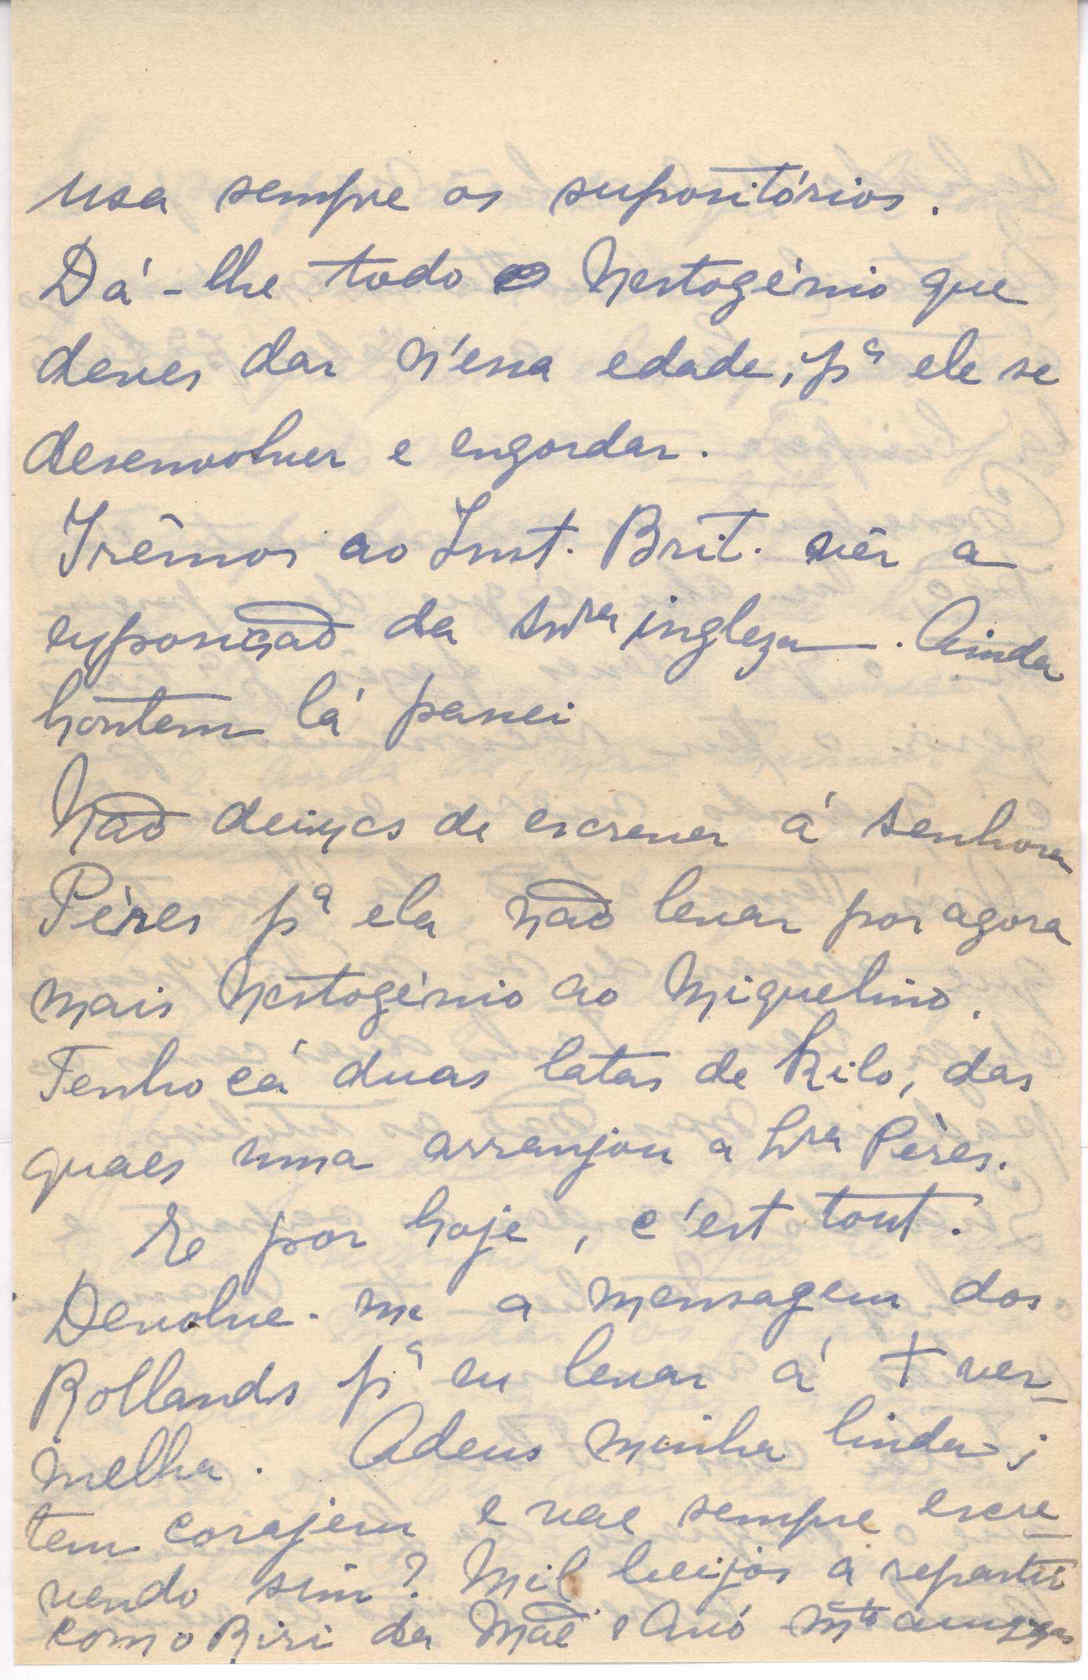 usa sempre os supositórios.
Dá-lhe todo o Nestogénio que
deves dar n'essa edade, pª ele se
desenvolver e engordar.
Irêmos ao Inst. Brit. vêr a
exposição da Snra ingleza. Ainda
hontem lá passei
Não deixes de escrever á senhora
Pères pª ela não levar por agora
mais Nestogénio ao Miguelino.
Tenho cá duas latas de kilo, das
quaes uma arranjou a Snra Pères.
E por hoje, c'est tout.
Devolve-me a mensagem dos
Rollands pª eu levar á + ver-
melha. Adeus minha linda;
tem corajem e vae sempre escre-
vendo sim? Mil beijos a repartir
com o Riri da Mãe e Avó mto amigas